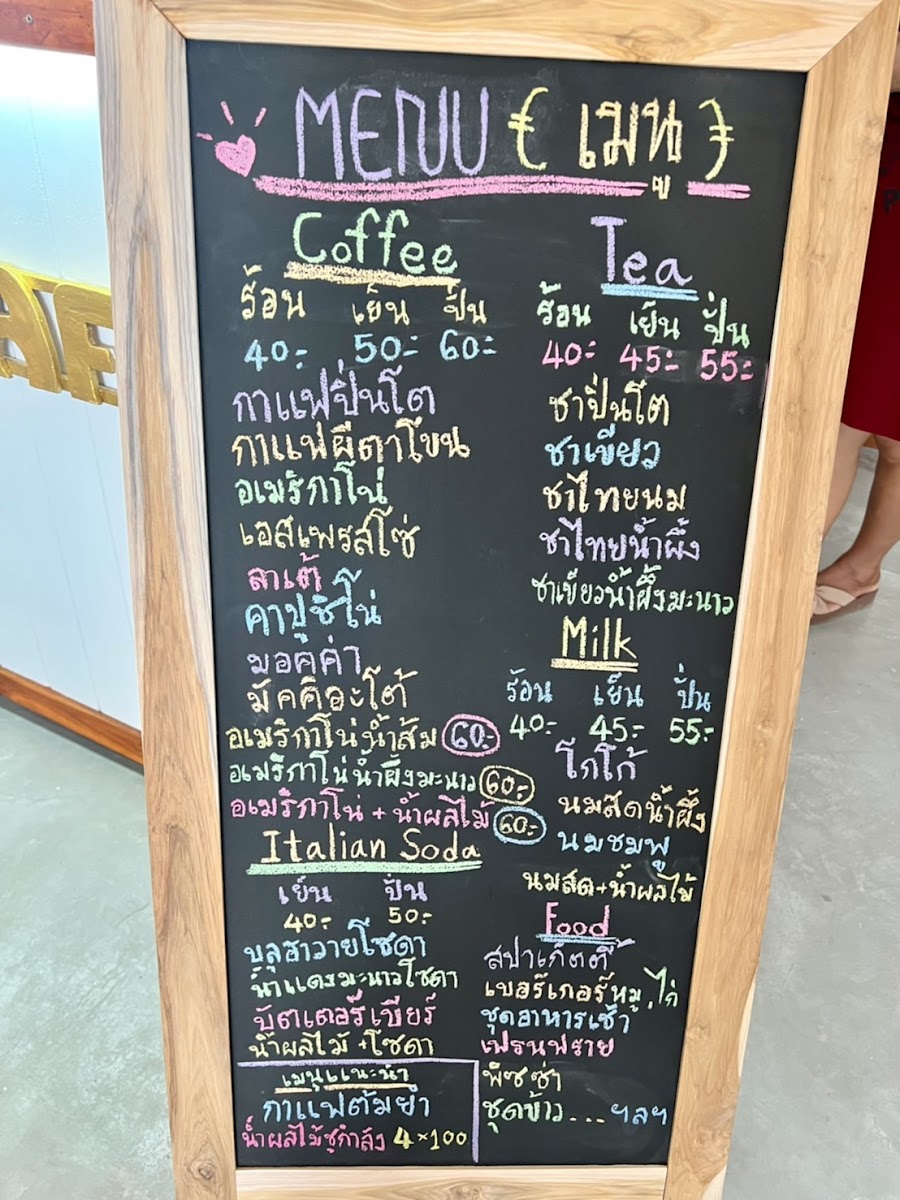 MENU { เมนู }
Coffee
ร้อน เย็น ปั่น
40.- 50.- 60.-
กาแฟปิ่นโต
กาแฟผีตาโขน
อเมริกาโน่
เอสเพรสโซ่
ลาเต้
คาปูชิโน่
มอคค่า
มัคคิอะโต้
อเมริกาโน่น้ำส้ม 60.-
อเมริกาโน่น้ำผึ้งมะนาว 60.-
อเมริกาโน่ + น้ำผลไม้ 60.-
Italian Soda
เย็น ปั่น
40.- 50.-
บลูฮาวายโซดา
น้ำแดงมะนาวโซดา
บัตเตอร์เบียร์
น้ำผลไม้ + โซดา
เมนูแนะนำ
กาแฟต้มยำ
น้ำผลไม้ชูกำลัง 4×100
Tea
ร้อน เย็น ปั่น
40.- 45.- 55.-
ชาปิ่นโต
ชาเขียว
ชาไทยนม
ชาไทยน้ำผึ้ง
ชาเขียวน้ำผึ้งมะนาว
Milk
ร้อน เย็น ปั่น
40.- 45.- 55.-
โกโก้
นมสดน้ำผึ้ง
นมชมพู
นมสด+น้ำผลไม้
Food
สปาเก็ตตี้
เบอร์เกอร์หมู,ไก่
ชุดอาหารเช้า
เฟรนฟราย
พิซซ่า
ชุดข้าว...ฯลฯ